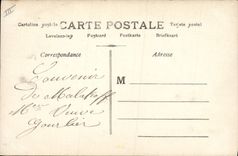 III
Cartolina postale CARTE POSTALE Tarjeta postal
Levelezö-lap Postcard Postkarte Briefkort
Correspondance Adresse
M
Souvenir
de Malakoff
Mme Veuve
Gourlier